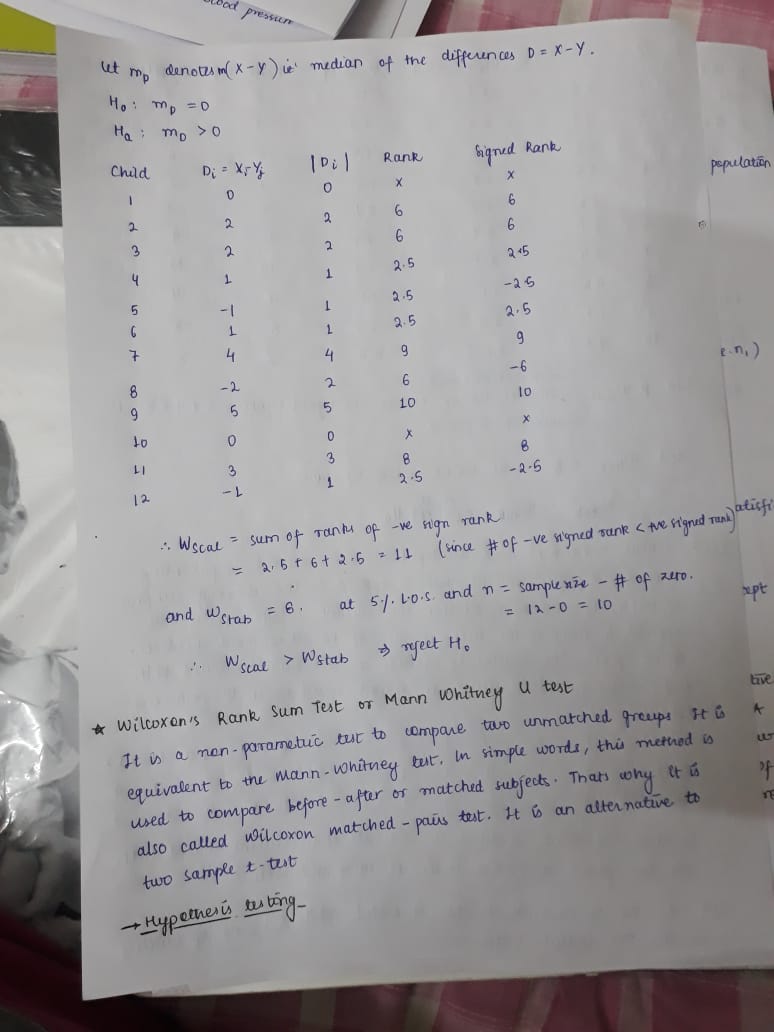 blood pressure
let m_D denotes m(X-Y) ie' median of the differences D = X-Y.
H₀ : m_D = 0
Hₐ : m_D > 0
Child Dᵢ = Xᵢ-Yⱼ |Dᵢ| Rank Signed Rank
1 0 0 x x
2 2 2 6 6
3 2 2 6 6
4 1 1 2.5 2.5
5 -1 1 2.5 -2.5
6 1 1 2.5 2.5
7 4 4 9 9
8 -2 2 6 -6
9 5 5 10 10
10 0 0 x x
11 3 3 8 8
12 -1 1 2.5 -2.5
∴ Wscal = sum of ranks of -ve sign rank
= 2.5 + 6 + 2.5 = 11 (since # of -ve signed rank < +ve signed rank)
and Wstab = 8. at 5% L.O.S. and n = sample size - # of zero.
= 12-0 = 10
∴ Wscal > Wstab ⇒ reject H₀
★ Wilcoxon's Rank Sum Test or Mann Whitney U test
It is a non-parametric test to compare two unmatched groups It is
equivalent to the Mann-Whitney test. In simple words, this method is
used to compare before-after or matched subjects. Thats why it is
also called Wilcoxon matched-pairs test. It is an alternative to
two sample t-test
→ Hypothesis testing
population
e.n₁)